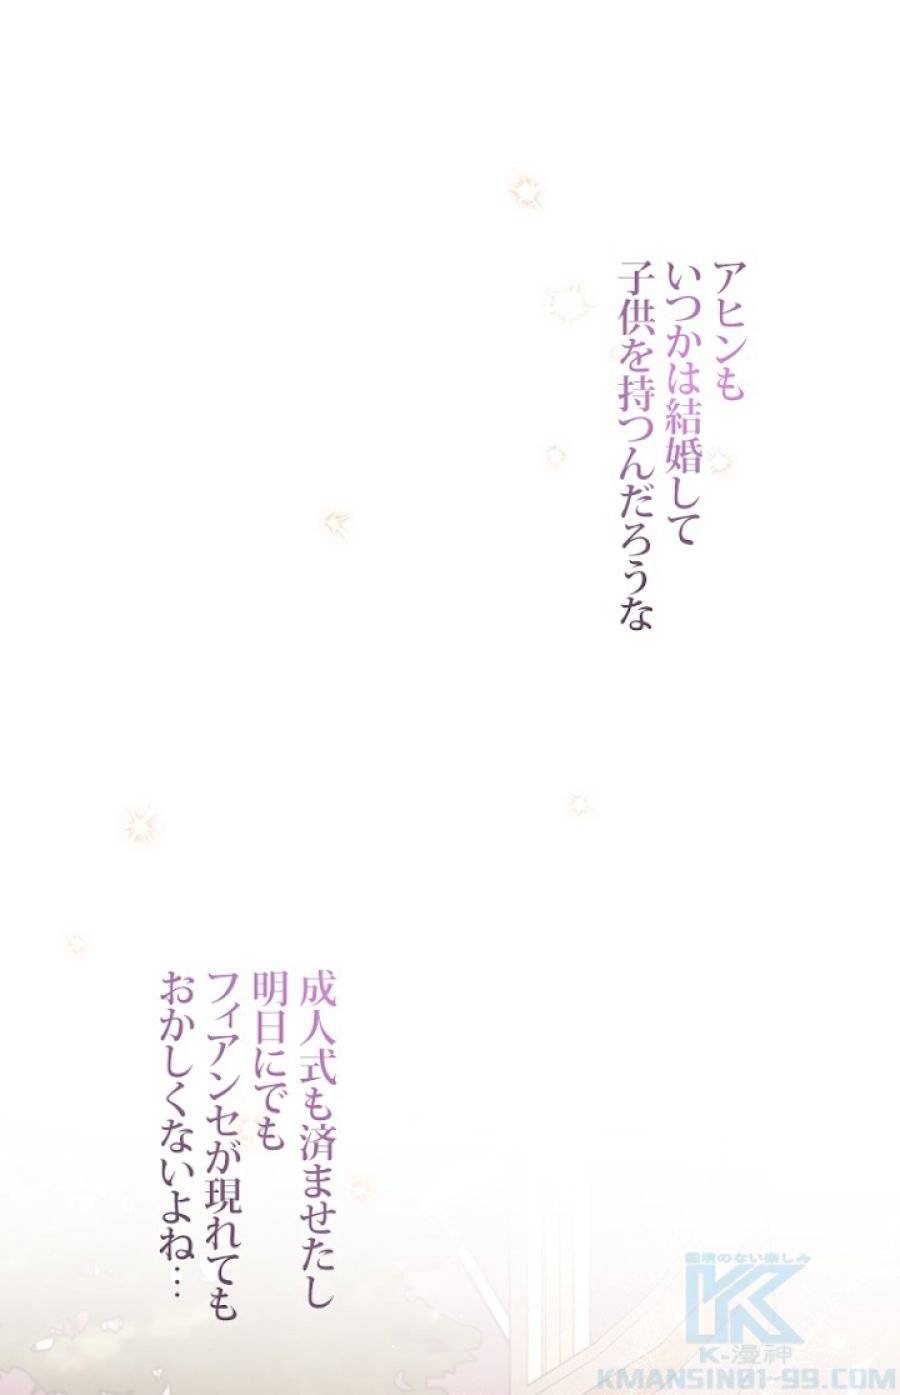 アヒンも
いつかは結婚して
子供を持つんだろうな
成人式も済ませたし
明日にでも
フィアンセが現れても
おかしくないよね…
のない楽しみ
K-漫神
KMANSIN01-99.COM